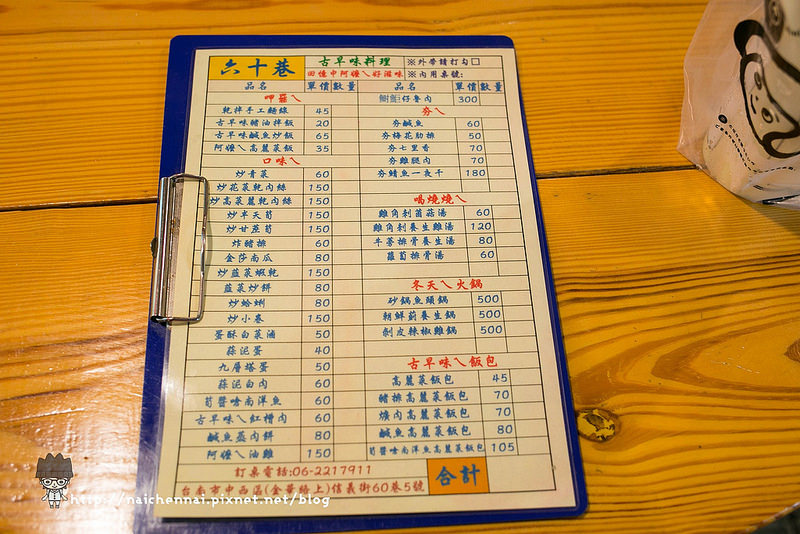 六十巷
古早味料理 ※外帶請打勾□
回憶中阿嬤ㄟ好滋味 ※內用桌號:
品名 單價 數量
呷羅ㄟ
乾拌手工麵線 45
古早味豬油拌飯 20
古早味鹹魚炒飯 65
阿嬤ㄟ高麗菜飯 35
口味ㄟ
炒青菜 60
炒花菜乾肉絲 150
炒高菜麗乾肉絲 150
炒半天筍 150
炒甘蔗筍 150
炸豬排 60
金莎南瓜 80
炒韭菜蝦乾 150
韭菜炒餅 80
炒蛤蜊 80
炒小卷 150
蛋酥白菜滷 50
蒜泥蛋 40
九層塔蛋 50
蒜泥白肉 60
筍醬嗆南洋魚 60
古早味ㄟ紅糟肉 60
鹹魚蒸肉餅 80
阿嬤ㄟ油雞 150
品名 單價 數量
仔魯肉 300
夯ㄟ
夯鹹魚 60
夯梅花肋排 50
夯七里香 70
夯雞腿肉 70
夯鯖魚一夜干 180
喝燒燒ㄟ
雞角刺菌菇湯 60
雞角刺養生雞湯 120
牛蒡排骨養生湯 80
蘿蔔排骨湯 60
冬天ㄟ火鍋
砂鍋魚頭鍋 500
朝鮮薊養生鍋 500
剝皮辣椒雞鍋 500
古早味ㄟ飯包
高麗菜飯包 45
豬排高麗菜飯包 70
爌肉高麗菜飯包 70
鹹魚高麗菜飯包 80
筍醬嗆南洋魚高麗菜飯包 105
合計
訂桌電話:06-2217911
台南市中西區(金華路上)信義街60巷5號
http://naichennai.pixnet.net/blog